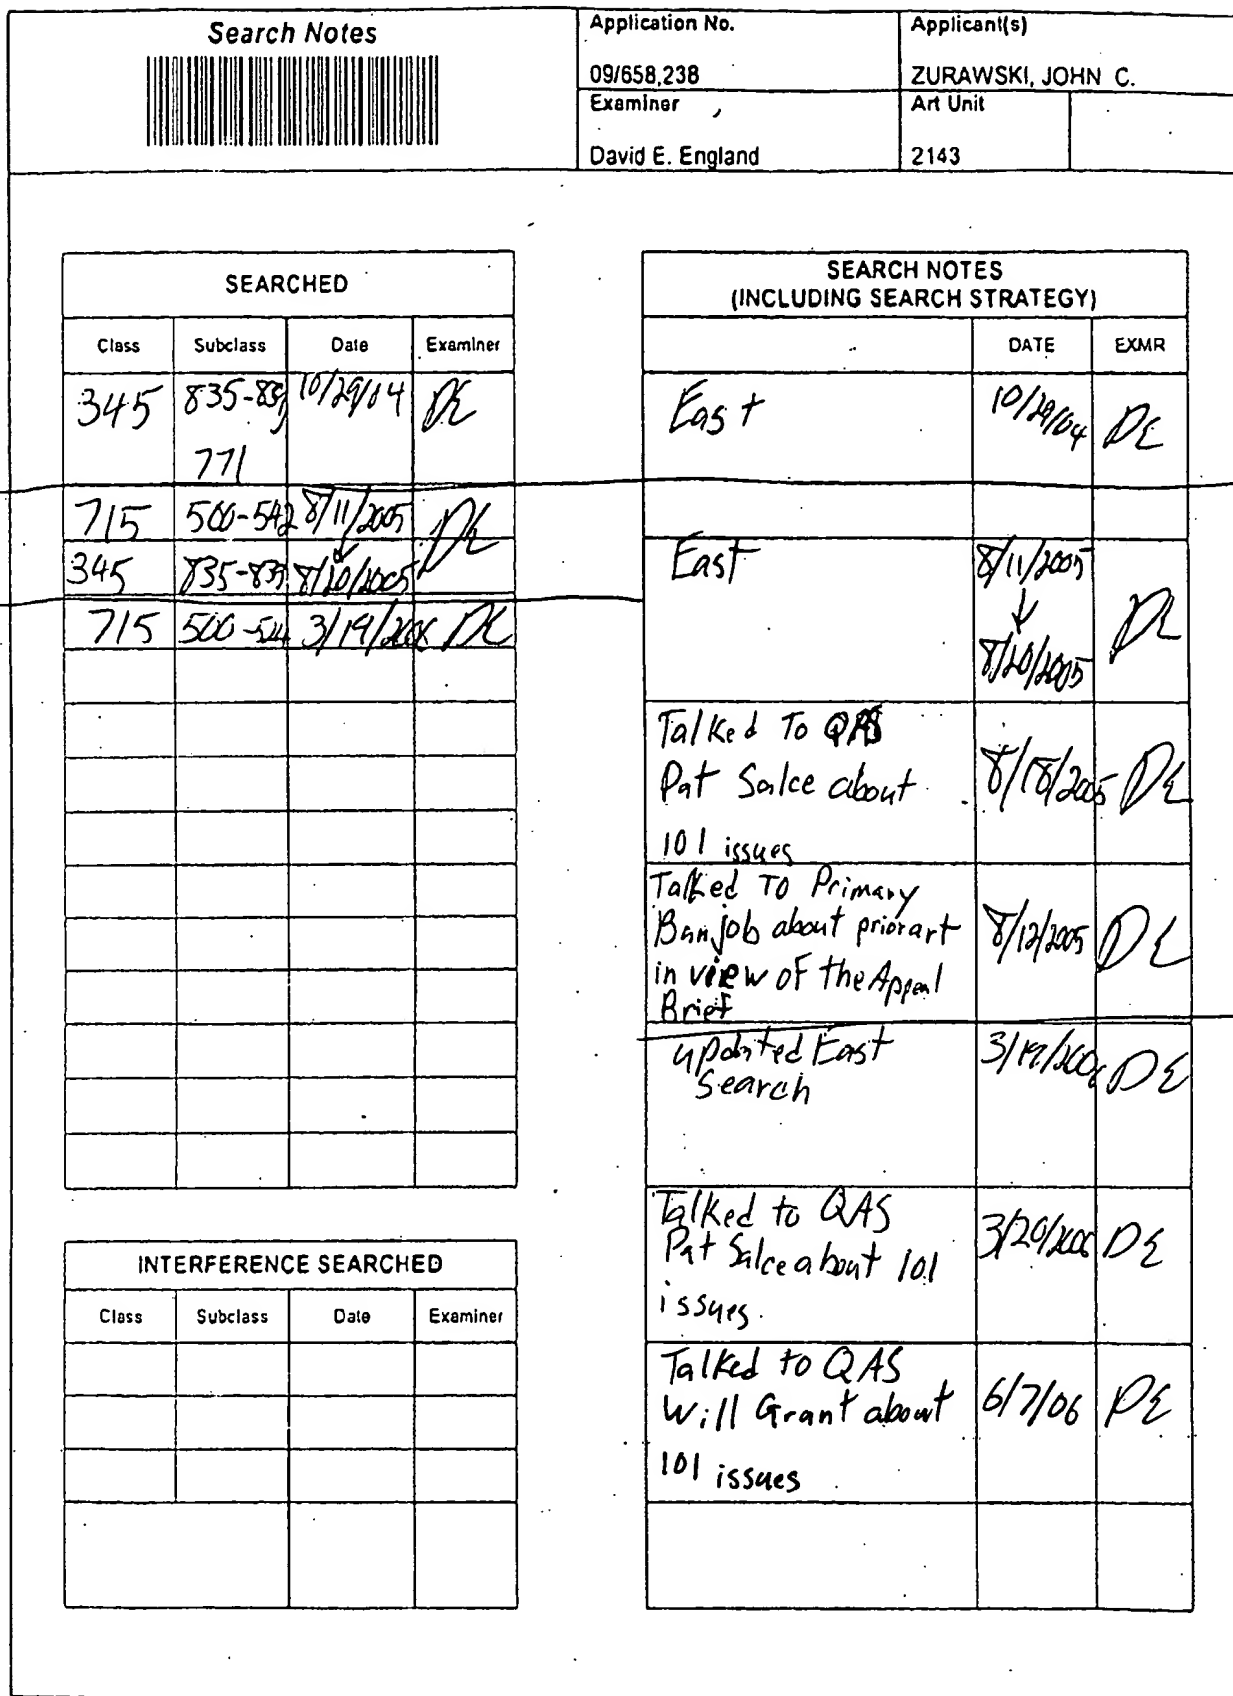 Search Notes
Application No.
09/658,238
Applicant(s)
ZURAWSKI, JOHN C.
Examiner
David E. England
Art Unit
2143
SEARCHED
Class Subclass Date Examiner
345 835-839 10/29/04 DE
771
715 500-542 8/11/2005 DE
345 835-839 8/20/2005
715 500-524 3/19/2006 DE
INTERFERENCE SEARCHED
Class Subclass Date Examiner
SEARCH NOTES
(INCLUDING SEARCH STRATEGY)
DATE EXMR
East 10/29/04 DE
East 8/11/2005 DE
8/20/2005
Talked To QAS
Pat Salce about 8/18/2005 DE
101 issues
Talked To Primary
about prior art 8/12/2005 DE
in view of the Appeal
Brief
updated East 3/19/2006 DE
Search
Talked to QAS
Pat Salce about 101 3/20/2006 DE
issues.
Talked to QAS
Will Grant about 6/7/06 DE
101 issues